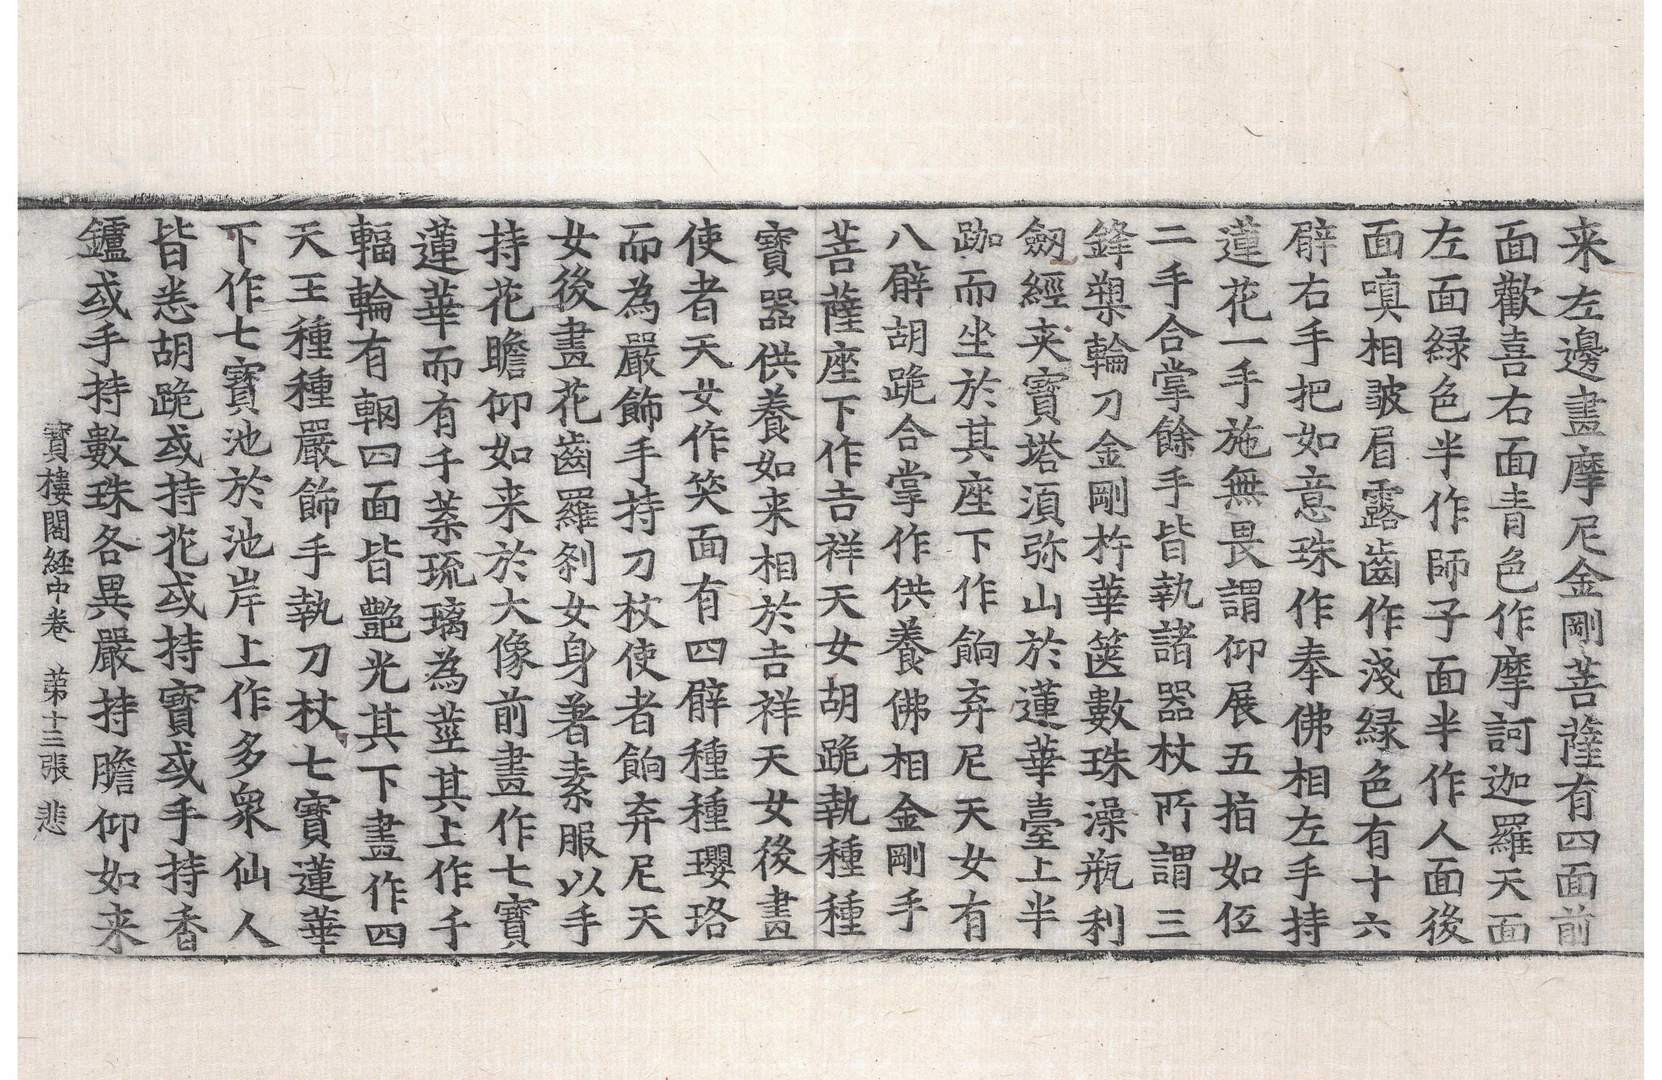 来左邊畫摩尼金剛菩薩有四面前
面歡喜右面青色作摩訶迦羅天面
左面緑色半作師子面半作人面後
面嗔相皺眉露齒作淺緑色有十六
臂右手把如意珠作奉佛相左手持
蓮花一手施無畏謂仰展五拍如伍
二手合掌餘手皆執諸器杖所謂三
鋒槊輪刀金剛杵華篋數珠澡瓶利
劔經夾寶塔湏弥山於蓮華臺上半
跏而坐於其座下作餉弃尼天女有
八臂胡跪合掌作供養佛相金剛手
菩薩座下作吉祥天女胡跪執種種
寶器供養如来相於吉祥天女後畫
使者天女作笑面有四臂種種瓔珞
而為嚴飾手持刀杖使者餉弃尼天
女後畫花齒羅刹女身著素服以手
持花瞻仰如来於大像前畫作七寶
蓮華而有千葉琉璃為莖其上作千
輻輪有輞四面皆艷光其下畫作四
天王種種嚴飾手執刀杖七寶蓮華
下作七寶池於池岸上作多衆仙人
皆悉胡跪或持花或持寶或手持香
鑪或手持數珠各異嚴持瞻仰如来
寶樓閣経中卷 苐十三張 悲